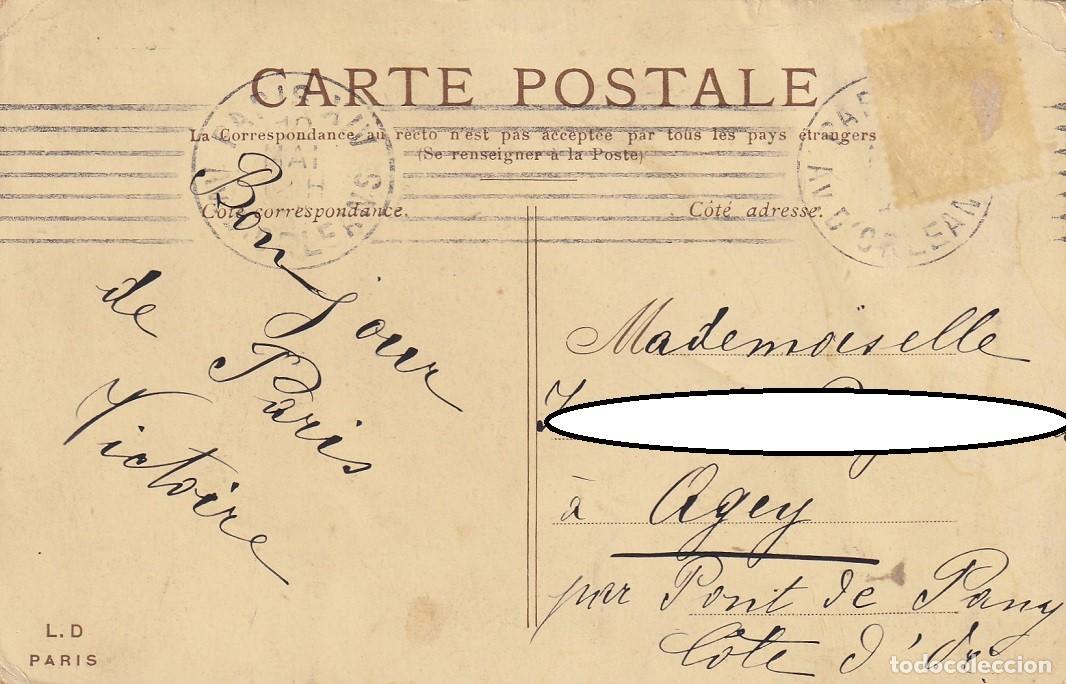 CARTE POSTALE
La Correspondance au recto n'est pas acceptée par tous les pays étrangers
(Se renseigner à la Poste)
Côté correspondance.
Côté adresse.
PARIS
MAI
AV. D'ORLEANS
PAR
AV D'ORLEAN
Bonjour
de Paris
Victoire
Mademoiselle
à Agey
par Pont de Pany
Côte d'Or
L.D
PARIS
todocoleccion